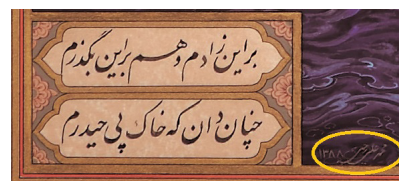 براین زادم و هم براین بگذرم
چنان دان که خاک پی حیدرم
۱۳۸۸